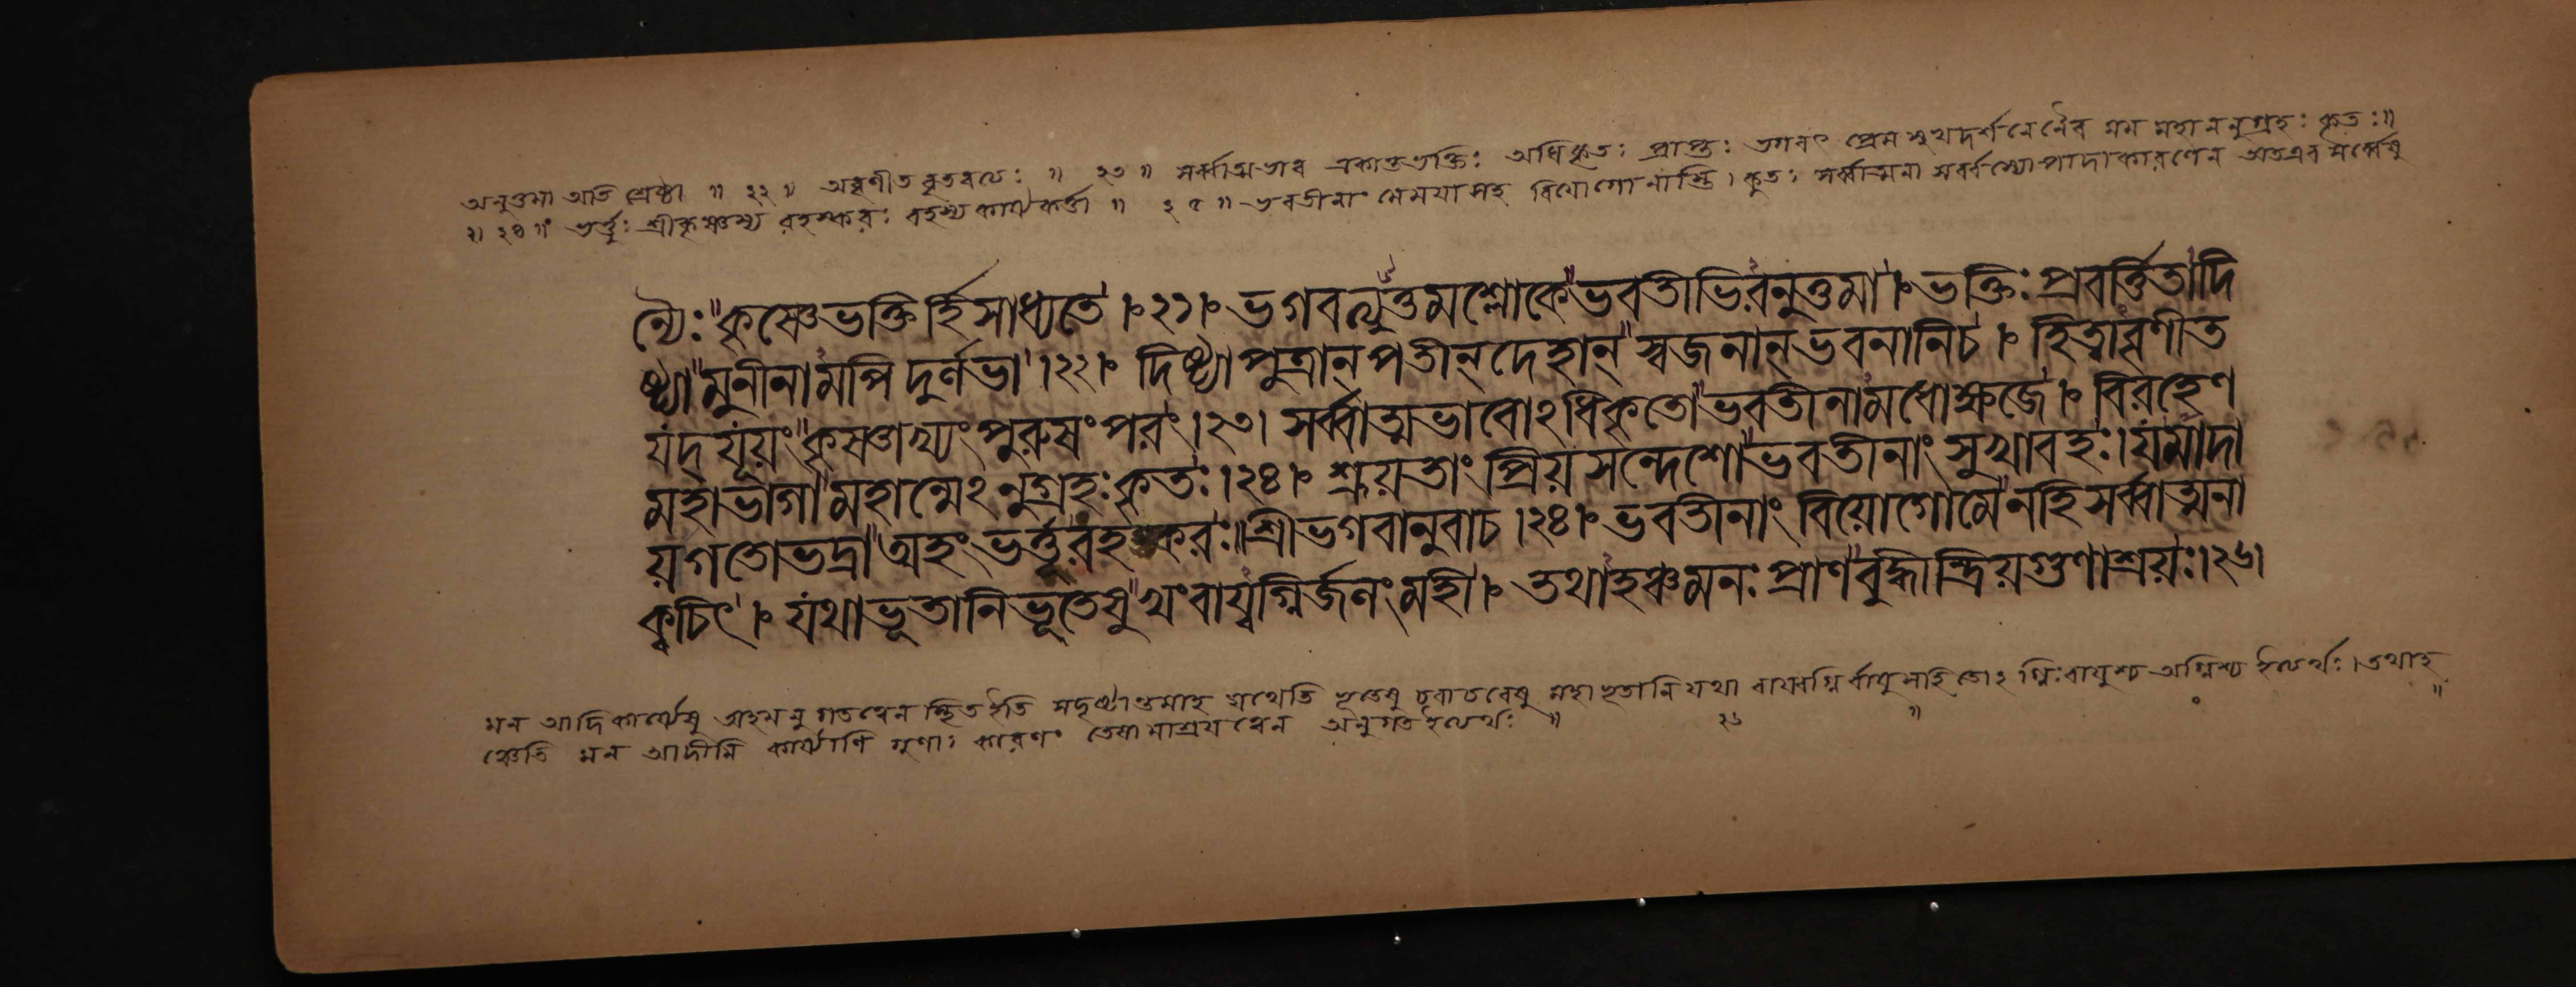 অনুত্তমা অতি শ্রেষ্ঠা ॥ ২২ ॥ অবৃণীত বৃতবত্যঃ ॥ ২৩ ॥ সর্ব্বাত্মভাব একান্তভক্তিঃ অধিকৃতঃ প্রাপ্তঃ ভগবৎ প্রেমসুখদর্শনেনৈব মম মহাননুগ্রহঃ কৃতঃ॥
॥ ২৪ ॥ ভর্ত্তুঃ শ্রীকৃষ্ণস্য রহস্করঃ রহস্য কার্য্যকর্ত্তা ॥ ২৫ ॥ ভবতীনাং মে ময়া সহ বিয়োগো নাস্তি। কুতঃ সর্ব্বাত্মনা সর্ব্বস্যোপাদাকারণেন অতএব সর্ব্বেষু
ন্যৈঃ কৃষ্ণেভক্তির্হি সাধ্যতে । ২১। ভগবত্যুত্তমশ্লোকে ভবতীভিরনুত্তমা । ভক্তিঃ প্রবর্ত্তিতাদি
ষ্ট্যা মুনীনামপি দুর্লভা । ২২। দিষ্ট্যা পুত্রান্ পতীন্ দেহান্ স্বজনান্ ভবনানি চ । হিত্বাবৃণীত
যদ্ যূয়ং কৃষ্ণাখ্যং পুরুষং পরং । ২৩। সর্ব্বাত্মভাবোঽধিকৃতো ভবতীনামধোক্ষজে । বিরহেণ
মহাভাগা মহান্মেঽনুগ্রহঃ কৃতঃ । ২৪। শ্রূয়তাং প্রিয়সন্দেশো ভবতীনাং সুখাবহঃ। যমাদা
য়গতো ভদ্রা অহং ভর্ত্তুরহস্করঃ॥ শ্রীভগবানুবাচ । ২৪। ভবতীনাং বিয়োগো মে নহি সর্ব্বাত্মনা
ক্বচিৎ । যথা ভূতানি ভূতেষু খং বায়্বগ্নির্জলং মহী । তথাহঞ্চ মনঃ প্রাণবুদ্ধীন্দ্রিয়গুণাশ্রয়ঃ। ২৬।
মন আদি কার্য্যেষু অহমনুগতত্বেন স্থিত ইতি সদৃষ্টান্তমাহ যথেতি ভূতেষু চরাচরেষু মহাভূতানি যথা বায়্বগ্নির্বায়ুসহিতোঽগ্নিঃ বায়ুশ্চ অগ্নিশ্চ ইত্যর্থঃ। তথাহ
ঞ্চেতি মন আদীনি কার্য্যাণি গুণাঃ কারণং তেষামাশ্রয়ত্বেন অনুগত ইত্যর্থঃ ॥ ২৬ ॥ ॥